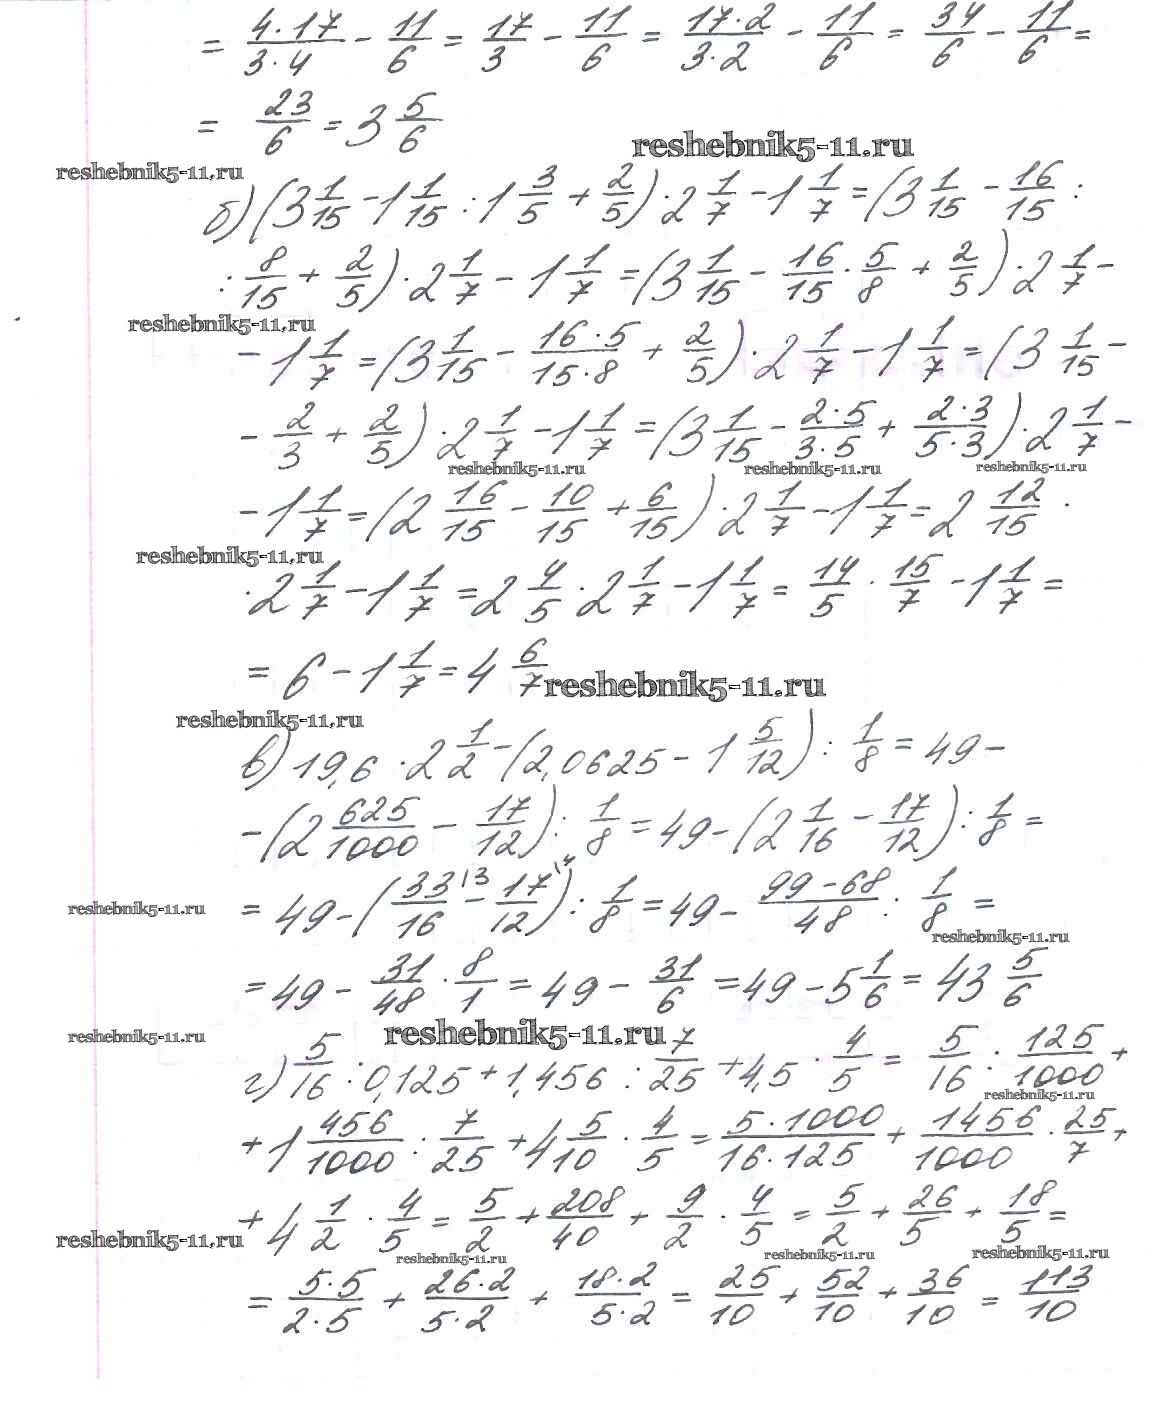 = 4·17/3·4 - 11/6 = 17/3 - 11/6 = 17·2/3·2 - 11/6 = 34/6 - 11/6 =
= 23/6 = 3 5/6
reshebnik5-11.ru
reshebnik5-11.ru
б) (3 1/15 - 1 1/15 : 1 3/5 + 2/5) · 2 1/7 - 1 1/7 = (3 1/15 - 16/15 :
: 8/15 + 2/5) · 2 1/7 - 1 1/7 = (3 1/15 - 16/15 · 5/8 + 2/5) · 2 1/7 -
reshebnik5-11.ru
- 1 1/7 = (3 1/15 - 16·5/15·8 + 2/5) · 2 1/7 - 1 1/7 = (3 1/15 -
- 2/3 + 2/5) · 2 1/7 - 1 1/7 = (3 1/15 - 2·5/3·5 + 2·3/5·3) · 2 1/7 -
reshebnik5-11.ru reshebnik5-11.ru reshebnik5-11.ru
- 1 1/7 = (2 16/15 - 10/15 + 6/15) · 2 1/7 - 1 1/7 = 2 12/15 ·
reshebnik5-11.ru
· 2 1/7 - 1 1/7 = 2 4/5 · 2 1/7 - 1 1/7 = 14/5 · 15/7 - 1 1/7 =
= 6 - 1 1/7 = 4 6/7
reshebnik5-11.ru
reshebnik5-11.ru
в) 19,6 · 2 1/2 - (2,0625 - 1 5/12) : 1/8 = 49 -
- (2 625/1000 - 17/12) : 1/8 = 49 - (2 1/16 - 17/12) : 1/8 =
= 49 - (33/16 \3 - 17/12 \4) : 1/8 = 49 - 99-68/48 : 1/8 =
reshebnik5-11.ru
reshebnik5-11.ru
= 49 - 31/48 · 8/1 = 49 - 31/6 = 49 - 5 1/6 = 43 5/6
reshebnik5-11.ru
reshebnik5-11.ru
г) 5/16 : 0,125 + 1,456 : 7/25 + 4,5 · 4/5 = 5/16 : 125/1000 +
reshebnik5-11.ru
+ 1 456/1000 : 7/25 + 4 5/10 · 4/5 = 5·1000/16·125 + 1456/1000 · 25/7 +
+ 4 1/2 · 4/5 = 5/2 + 208/40 + 9/2 · 4/5 = 5/2 + 26/5 + 18/5 =
reshebnik5-11.ru reshebnik5-11.ru reshebnik5-11.ru reshebnik5-11.ru
= 5·5/2·5 + 26·2/5·2 + 18·2/5·2 = 25/10 + 52/10 + 36/10 = 113/10